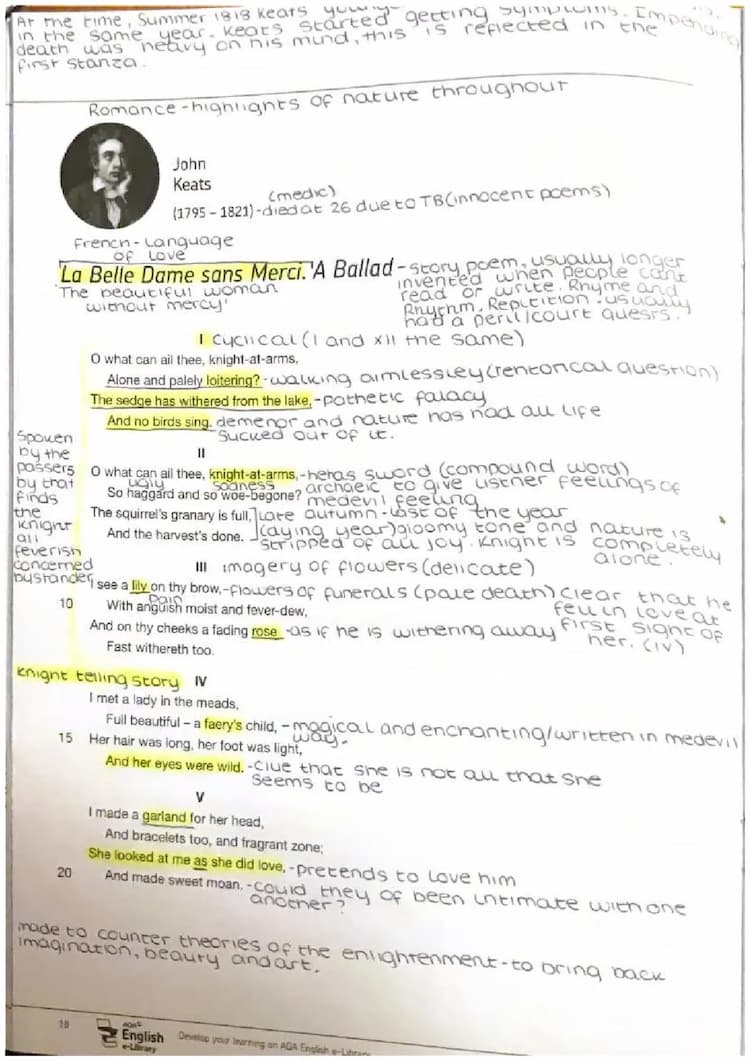 At the time, Summer 1818 Keats
in the same year. Keats started getting symptoms. Impending
death was heavy on his mind, this is reflected in the
first stanza.
Romance - highlights of nature throughout
John
Keats
(medic)
(1795 – 1821) - died at 26 due to TB (innocent poems)
French - Language
of love
'La Belle Dame sans Merci. 'A Ballad - story poem, usually longer
'The beautiful woman
without mercy'
invented when people cant
read or write. Rhyme and
Rhythm, Repitition - usually
had a peril/court quests.
I cyclical (I and xii the same)
O what can ail thee, knight-at-arms,
Alone and palely loitering? - walking aimlessley (rentorical question)
The sedge has withered from the lake, - pathetic falacy
And no birds sing. demenor and nature has had all life
sucked out of it.
II
O what can ail thee, knight-at-arms, - heras sword (compound word)
ugly sadness archaeic to give listner feelings of
So haggard and so woe-begone? medevil feeling
The squirrel's granary is full, late autumn - last of the year
And the harvest's done. (dying year) gloomy tone and nature is
stripped of all joy. Knight is completely
alone.
spoken
by the
passers
by that
finds
the
knight
all
feverish
concerned
bystander
III imagery of flowers (delicate)
I see a lily on thy brow, - flowers of funerals (pale death) clear that he
fell in love at
first signt of
her. (iv)
pain
10 With anguish moist and fever-dew,
And on thy cheeks a fading rose - as if he is withering away
Fast withereth too.
knight telling story IV
I met a lady in the meads,
Full beautiful – a faery's child, - magical and enchanting/written in medevil
way.
15 Her hair was long, her foot was light,
And her eyes were wild. - clue that she is not all that she
seems to be
V
I made a garland for her head,
And bracelets too, and fragrant zone;
She looked at me as she did love, - pretends to love him
20 And made sweet moan. - could they of been intimate with one
another?
made to counter theories of the enlightenment - to bring back
imagination, beauty and art.
18
AQA
English
e-Library
Develop your learning on AQA English e-Library